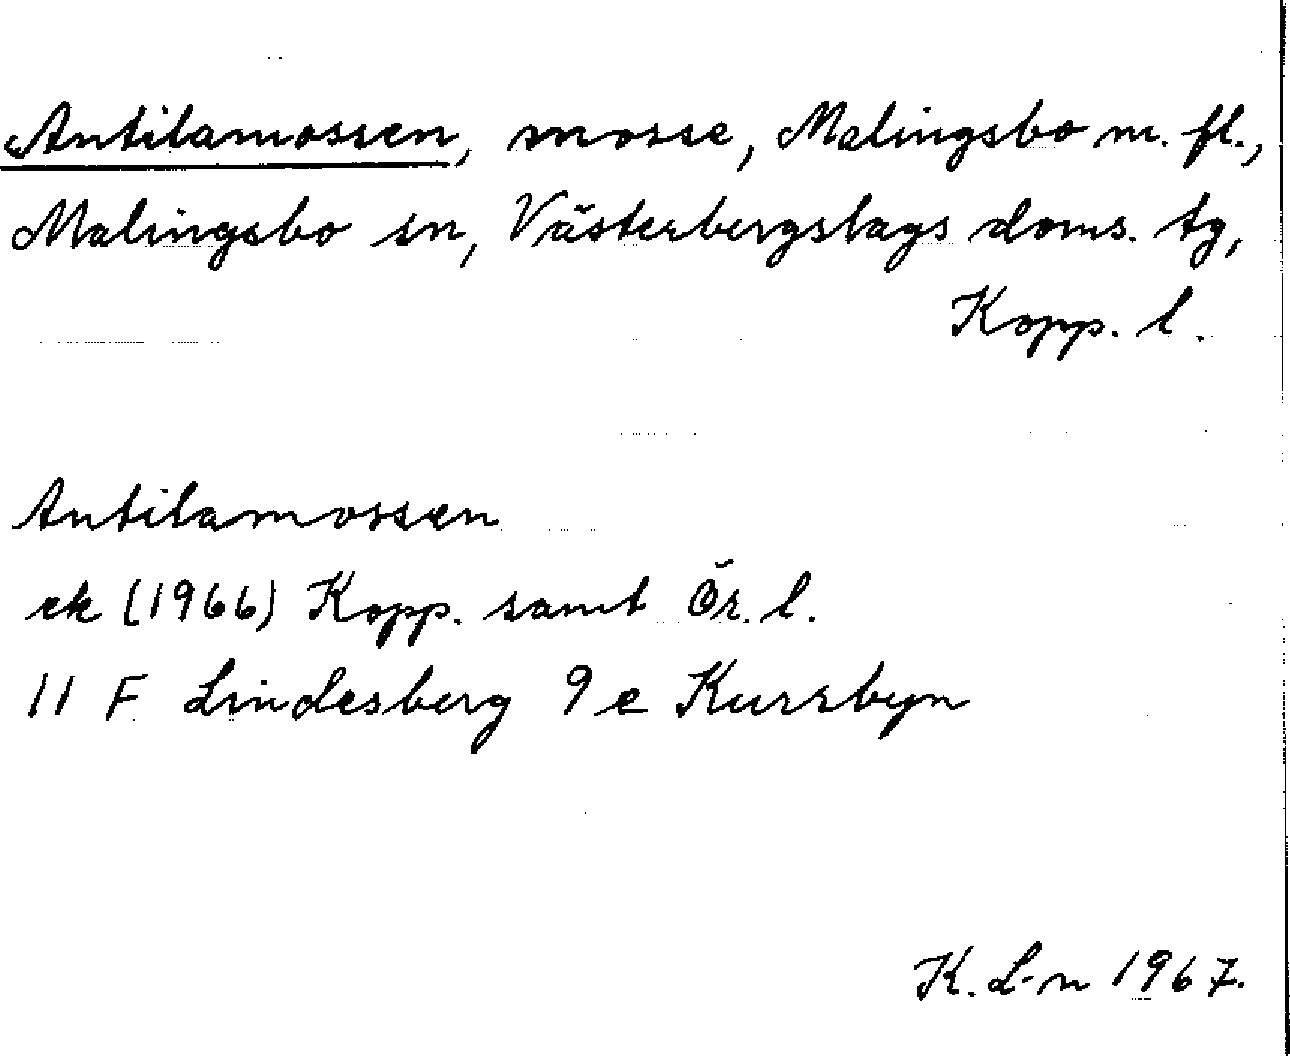 Antilamossen, mosse, Malingsbo m. fl.,
Malingsbo sn, Västerbergslags doms. tg,
Kopp. l.
Antilamossen
ek (1966) Kopp. samt Ör. l.
11 F Lindesberg 9 e Kursbyn
K. L-n 1967.